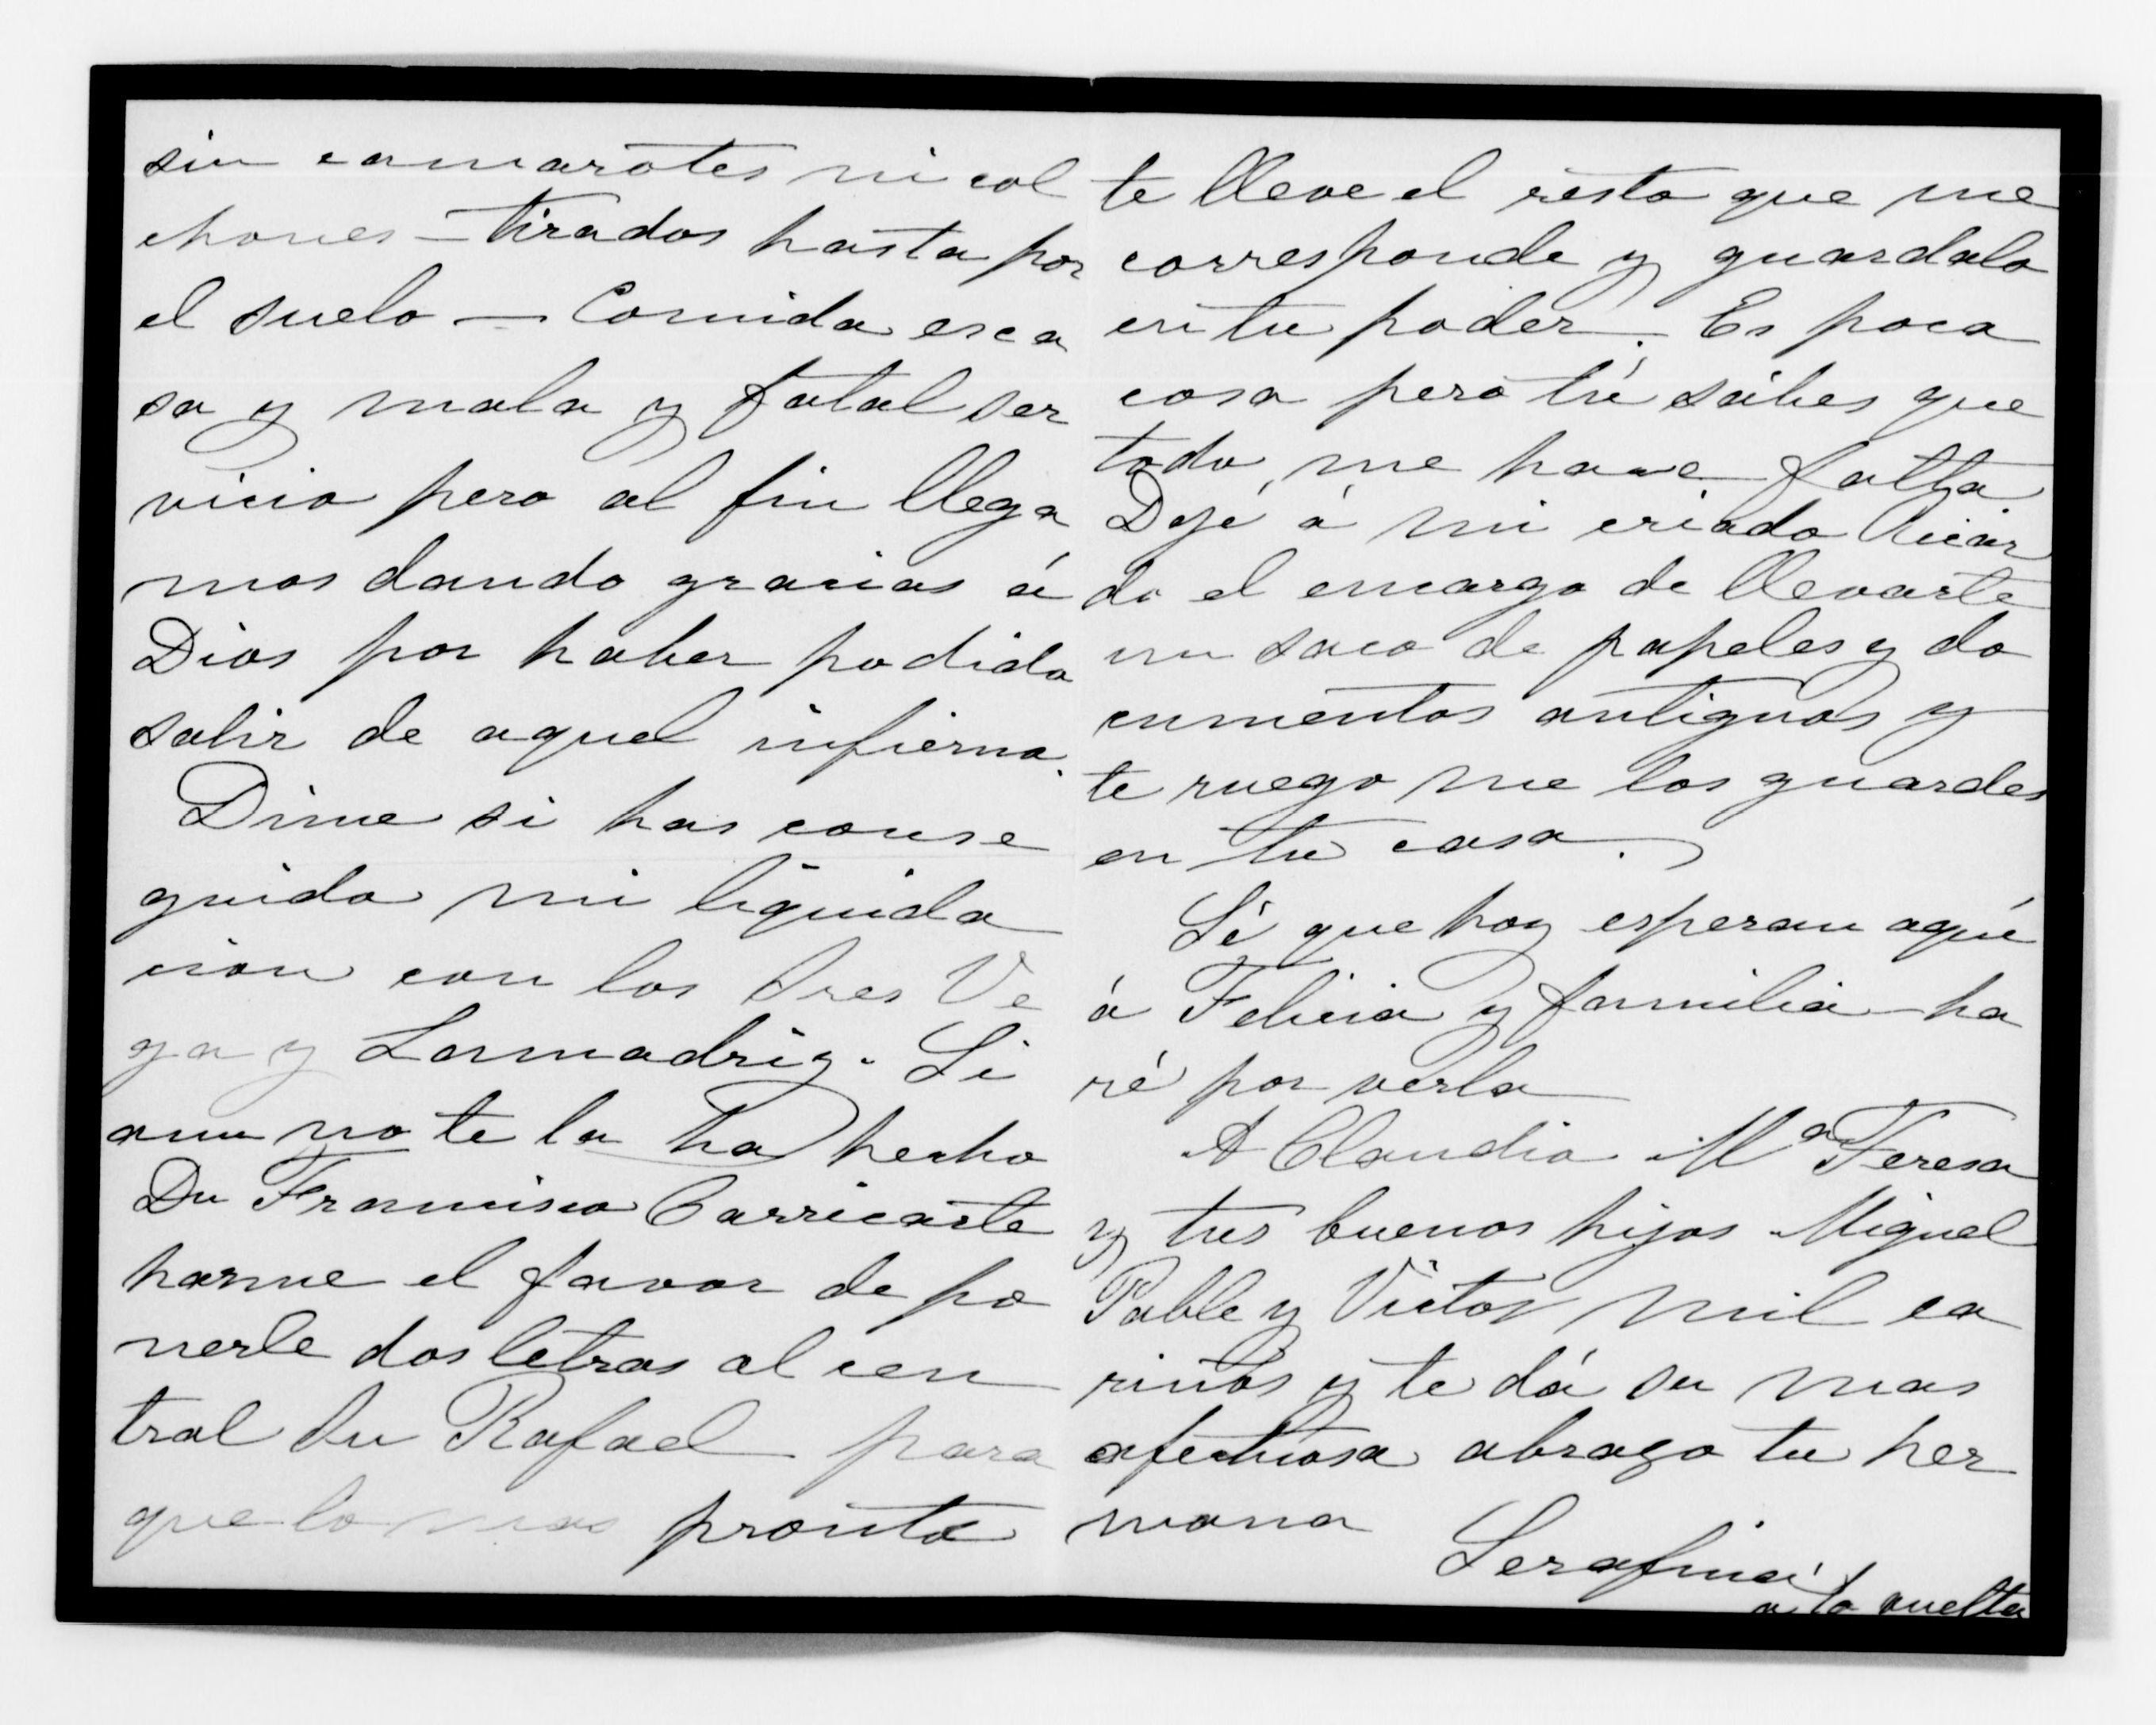 sin camarotes ni col
chones – tirados hasta por
el suelo – Comida esca
sa y mala y fatal ser
vicio pero al fin llega
mos dando gracias á
Dios por haber podido
salir de aquel infierno.
Dime si has conse
guido mi liquida
cion con los Sres Ve
ga y Lamadriz. Si
aun no te la ha hecho
Dn Francisco Carricarte
harme el favor de po
nerle dos letras al cen
tral Sn Rafael para
que lo mas pronto
te lleve el resto que me
corresponde y guardalo
en tu poder. Es poca
cosa pero tú sábes que
todo me hace falta
Dejé á mi criado Ricar
do el encargo de llevarte
un saco de papeles y do
cumentos antiguos y
te ruego me los guardes
en tu casa.
Sé que hoy esperan aquí
á Felicia y familia – ha
ré por verla
A Claudia Mª Teresa
y tus buenos hijos Miguel
Pable y Victor mil ca
riños y te dá su mas
afectuosa abrazo tu her
mana
Serafina
á la vuelta